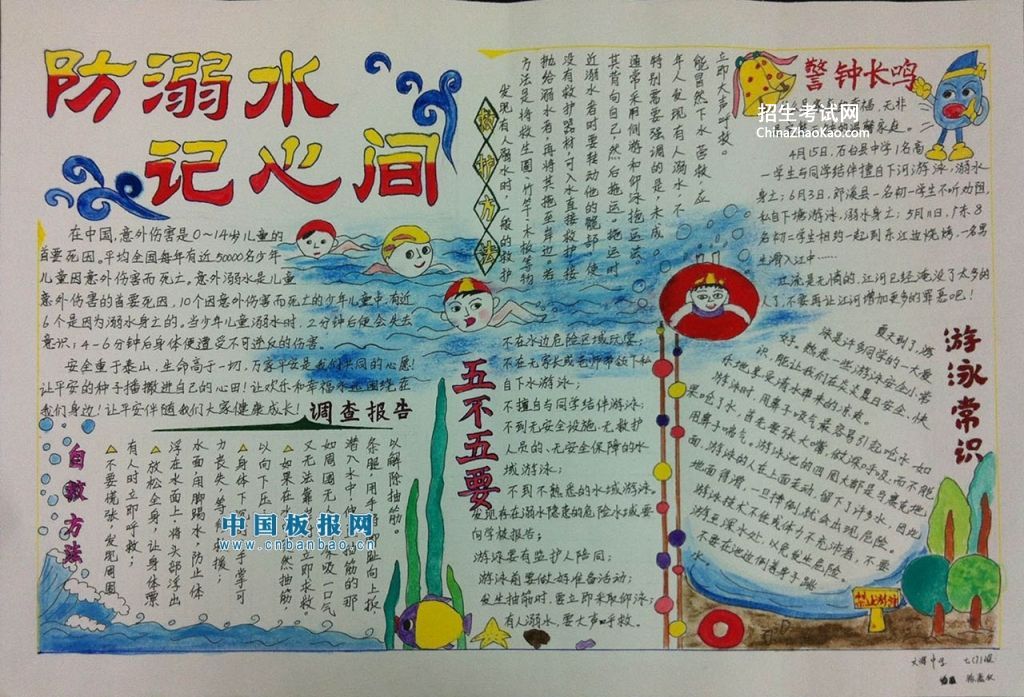 防溺水
记心间
在中国,意外伤害是0~14岁儿童的
首要死因。平均全国每年有近50000名少年
儿童因意外伤害而死亡。意外溺水是儿童
意外伤害的首要死因,10个因意外伤害而死亡的少年儿童中,有近
6个是因为溺水身亡的。当少年儿童溺水时,2分钟后便会失去
意识;4-6分钟后身体便遭受不可逆反的伤害。
安全重于泰山,生命高于一切,万家平安是我们共同的心愿!
让平安的种子播撒进自己的心田!让欢乐和幸福永远围绕在
我们身边!让平安伴随我们大家健康成长!
调查报告
自救方法
▲不要慌张,发现周围
有人时立即呼救;
▲放松全身,让身体漂
浮在水面上,将头部浮出
水面,用脚踢水,防止体
▲如果在水
以解除抽筋。
救护方法
发现有人溺水时,一般的救护
方法是将救生圈、竹竿、木板等物
抛给溺水者,再将其拖至岸边。若
没有救护器材,可入水直接救护。接
近溺水者时要转动他的髋部,使
其背向自己,然后拖运。拖运时
通常采用侧游和仰泳拖运法。
特别需要强调的是,未成
年人发现有人溺水,不
能冒然下水营救,应
立即大声呼救。
警钟长鸣
招生考试网
ChinaZhaoKao.com
4月15日,石臼县中学1名高
一学生与同学结伴擅自下河游泳,溺水
身亡;6月3日,郎溪县一名初一学生不听劝阻,
私自下塘游泳,溺水身亡;5月11日,广东8
名初二学生相约一起到东江边烧烤,一名男
生滑入江中……
江流是无情的,江河已经淹没了太多的
人了,不要再让江河增加更多的罪恶吧!
五不五要
不在水边危险区域玩耍;
不在无家长或老师带领下私
自下水游泳;
不擅自与同学结伴游泳;
不到无安全设施、无救护
人员的、无安全保障的水
域游泳;
不到不熟悉的水域游泳。
发现存在溺水隐患的危险水域要
向学校报告;
游泳要有监护人陪同;
游泳前要做好准备活动;
发生抽筋时,要立即采取仰泳;
有人溺水,要大声呼救。
游泳常识
夏天到了,游
泳是许多同学的一大爱
好。熟悉一些游泳安全小常
识,能让我们在炎炎夏日安全、快
乐地享受清水带来的凉爽。
游泳时,用鼻子吸气很容易引起呛水。如
果呛了水,首先要张大嘴,做深呼吸;而不能
用鼻子喘气。游泳池的四周大都是马赛克地
面,游泳的人在上面走动,留下了许多水,因此
地面很滑,一旦摔倒,就会出现危险。
游泳技术不佳或体力不充沛者,不要
游至深水处,以免发生危险。
不要在池边倒着身子跳
水。
禁止游泳
中国板报网
www.cnbanbao.cn